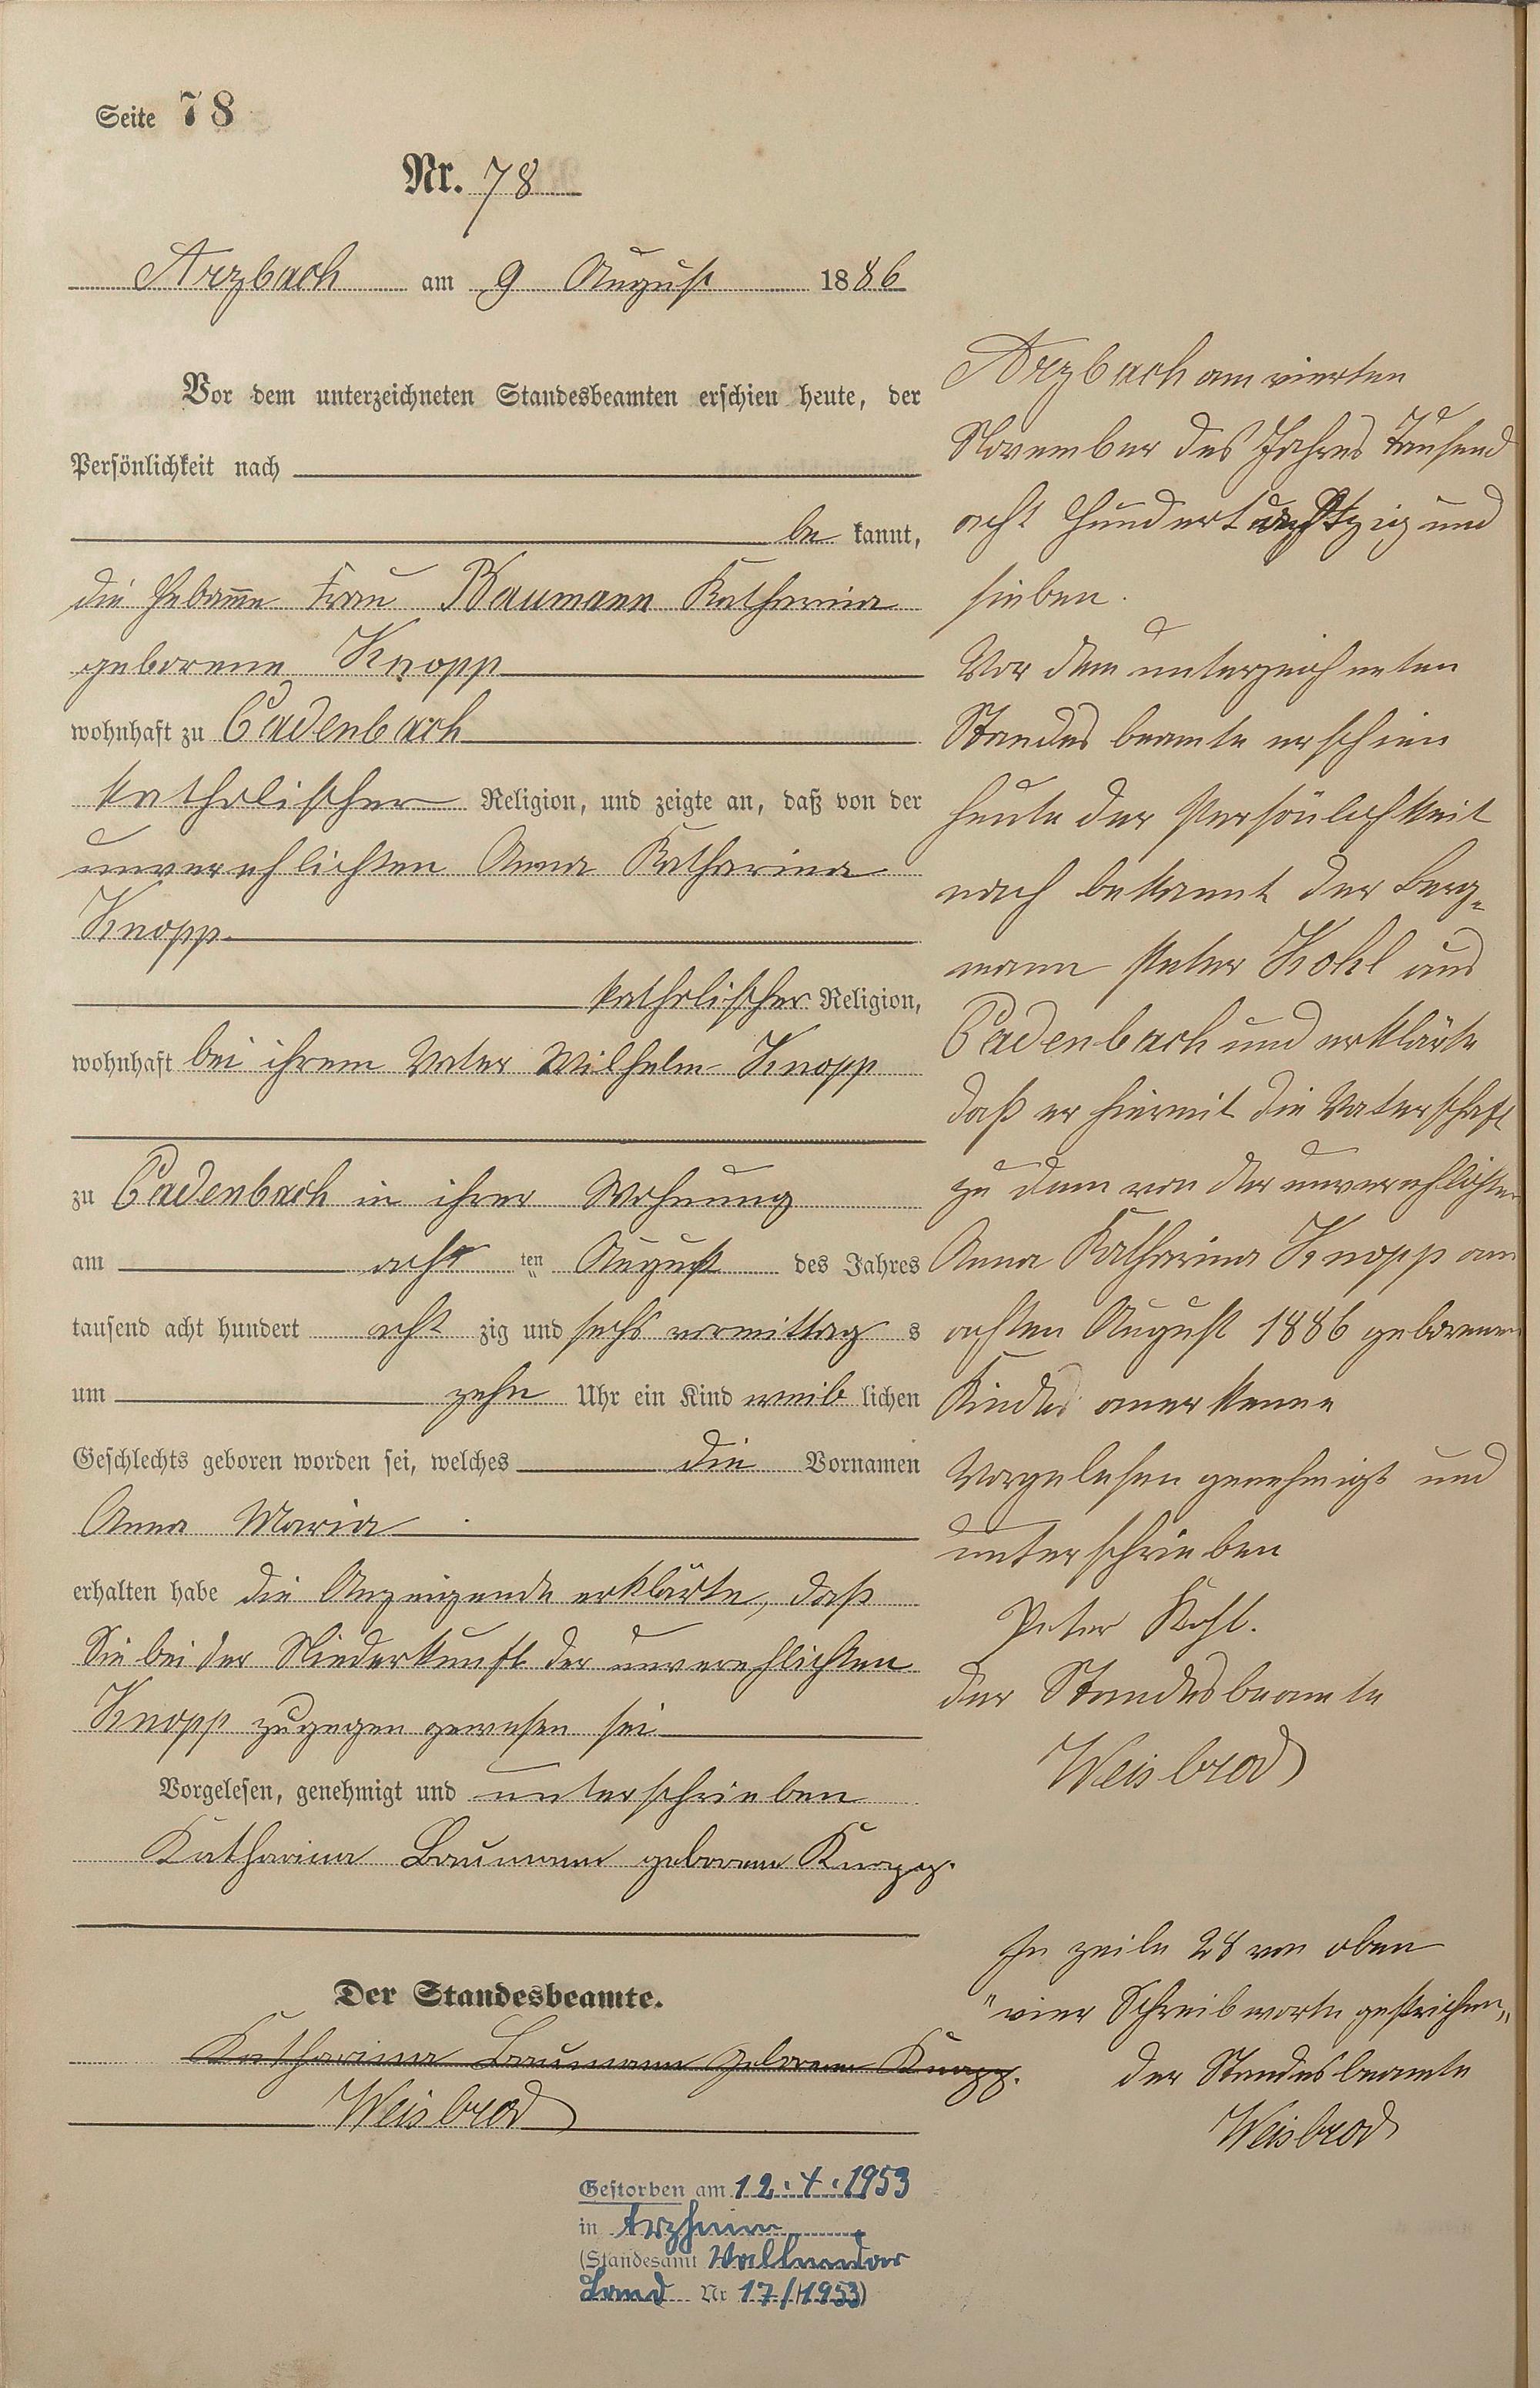 Seite 78
Nr. 78
Arzbach am 9 August 1886
Vor dem unterzeichneten Standesbeamten erschien heute, der
Persönlichkeit nach
be kannt,
die Hebamme Frau Baumann Katharina
geborene Knopp
wohnhaft zu Cadenbach
katholischer Religion, und zeigte an, daß von der
unverehlichten Anna Katharina
Knopp
katholischer Religion,
wohnhaft bei ihrem Vater Wilhelm Knopp
zu Cadenbach in ihrer Wohnung
am acht ten August des Jahres
tausend acht hundert acht zig und sechs vormittag s
um zehn Uhr ein Kind weib lichen
Geschlechts geboren worden sei, welches die Vornamen
Anna Maria
erhalten habe die Anzeigende erklärte, daß
Sie bei der Niederkunft der unverehlichten
Knopp zugegen gewesen sei
Vorgelesen, genehmigt und unterschrieben
Katharina Baumann geborene Knopp.
Der Standesbeamte.
Katharina Baumann geborene Knopp.
Weisbrod
Arzbach am vierten
November des Jahres Tausend
acht Hundert achtzig und
sieben.
Vor dem unterzeichneten
Standes beamte erschien
heute der Persönlichkeit
nach bekannt der Berg-
mann Peter Kohl aus
Cadenbach und erklärte
daß er hiermit die Vaterschaft
zu dem von der unverehlichten
Anna Katharina Knopp am
achten August 1886 geborenen
Kindes anerkenne
Vorgelesen genehmigt und
unterschrieben
Peter Kohl.
der Standesbeamte
Weisbrod
In zeile 28 von oben
"vier Schreibworte gestrichen"
der Standesbeamte
Weisbrod
Gestorben am 12.4.1953
in Arzheim
(Standesamt Vallendar
Land Nr 17/1953)